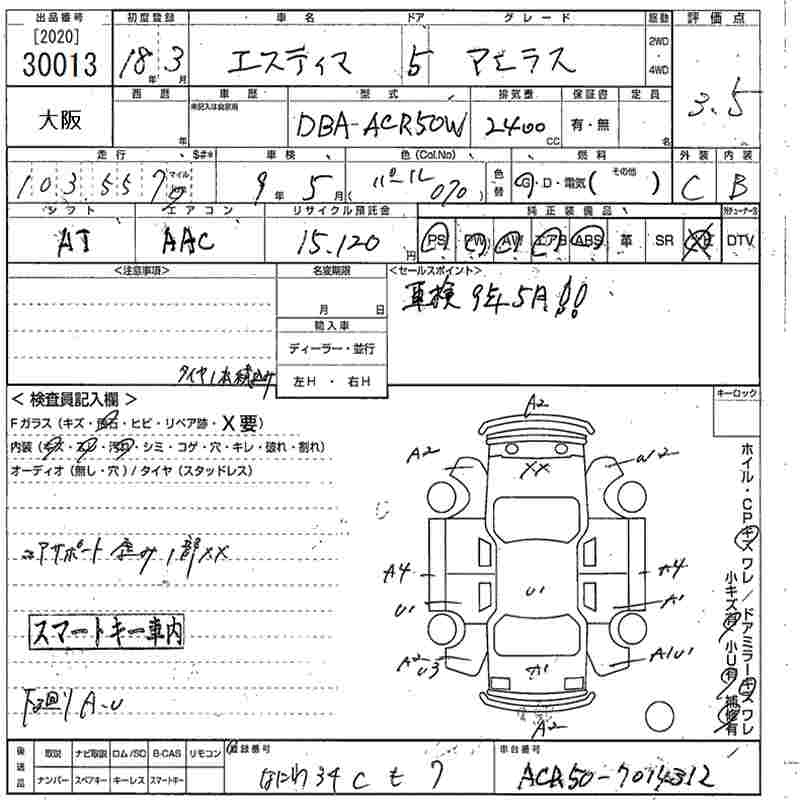 出品番号 初度登録 車名 ドア グレード 駆動 評価点
[2020]
30013 18年 3月 エスティマ 5 アエラス 2WD 4WD 3.5
大阪 西暦 年 車歴 未記入は自家用 型式 DBA-ACR50W 排気量 2400 CC 保証書 有・無 定員 名
走行 、 $#* 車検 、 色(Col.No) 、 燃料 、 外装 内装
103,557 マイル 9年 5月 パール (070) 色替 G・D・電気( その他 ) C B
シフト エアコン リサイクル預託金 純正装備品 、
AT AAC 15,120円 PS PW AW エアB ABS 革 SR DTV
<注意事項> 名変期限 <セールスポイント>
月 日 車検 9年5月!!
輸入車
ディーラー・並行
タイヤ1本
左H ・ 右H
< 検査員記入欄 > キーロック
Fガラス(キズ・飛石・ヒビ・リペア跡・X要)
内装(キズ・スレ・汚れ・シミ・コゲ・穴・キレ・破れ・割れ)
オーディオ(無し・穴)/タイヤ(スタッドレス)
A2
A2 XX W2
コアサポート 歪み 1部XX
A4 U1 A4
U1 A1
スマートキー車内
A2 U3 A1 A1U1
下回り A-U
A2
ホイル・CPキズワレ/ドアミラーキズワレ
小キズ有 小U有 補修有
後送品 取説 ナビ取説 ロム/SD B-CAS リモコン 登録番号 車台番号
ナンバー スペアキー キーレス スマートキー なにわ 34 C も 7 ACR50-7014312